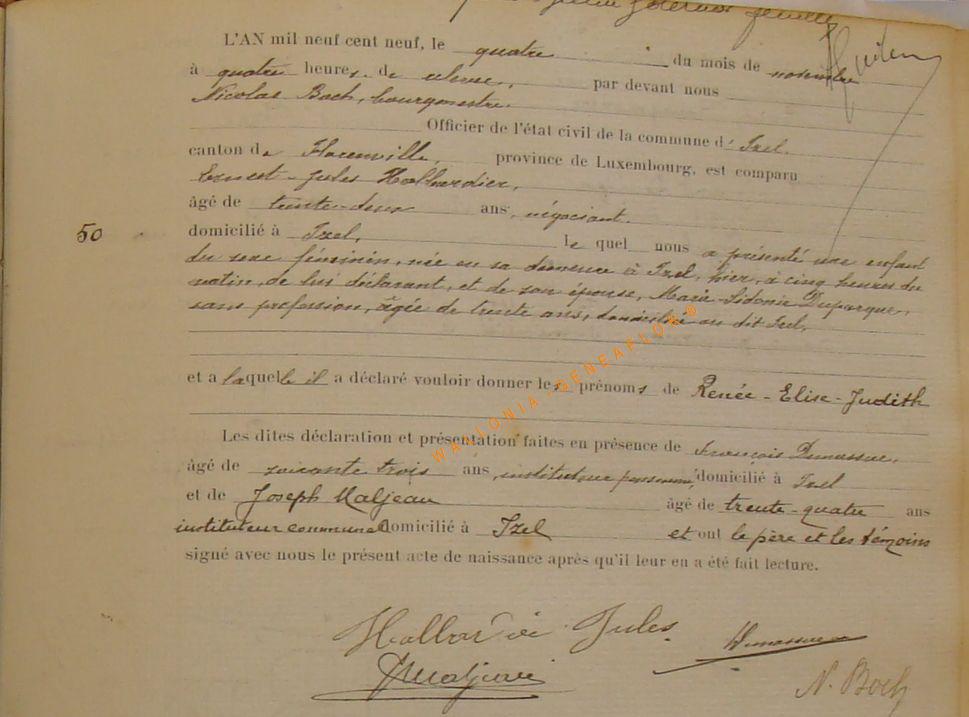 L'AN mil neuf cent neuf, le quatre du mois de novembre
à quatre heures de relevé, par devant nous
Nicolas Boch, bourgmestre.
Officier de l'état civil de la commune d' Izel.
canton de Florenville, province de Luxembourg, est comparu
Ernest-Jules Hallardier,
âgé de trente-deux ans, négociant.
50
domicilié à Izel, Le quel nous a présenté une enfant
du sexe féminin, née en sa demeure à Izel, hier, à cinq heures du
matin, de lui déclarant, et de son épouse, Marie-Sidonie Duparque,
sans profession, âgée de trente ans, domiciliée au dit Izel,
et a laquelle il a déclaré vouloir donner les prénoms de Renée-Elise-Judith
Les dites déclaration et présentation faites en présence de François Dumassue,
âgé de soixante trois ans, instituteur domicilié à Izel
et de Joseph Maljean âgé de trente-quatre ans
instituteur communal domicilié à Izel et ont le père et les témoins
signé avec nous le présent acte de naissance après qu'il leur en a été fait lecture.
Jules
N. Boch
WALLONIA.GENEAFLOR®